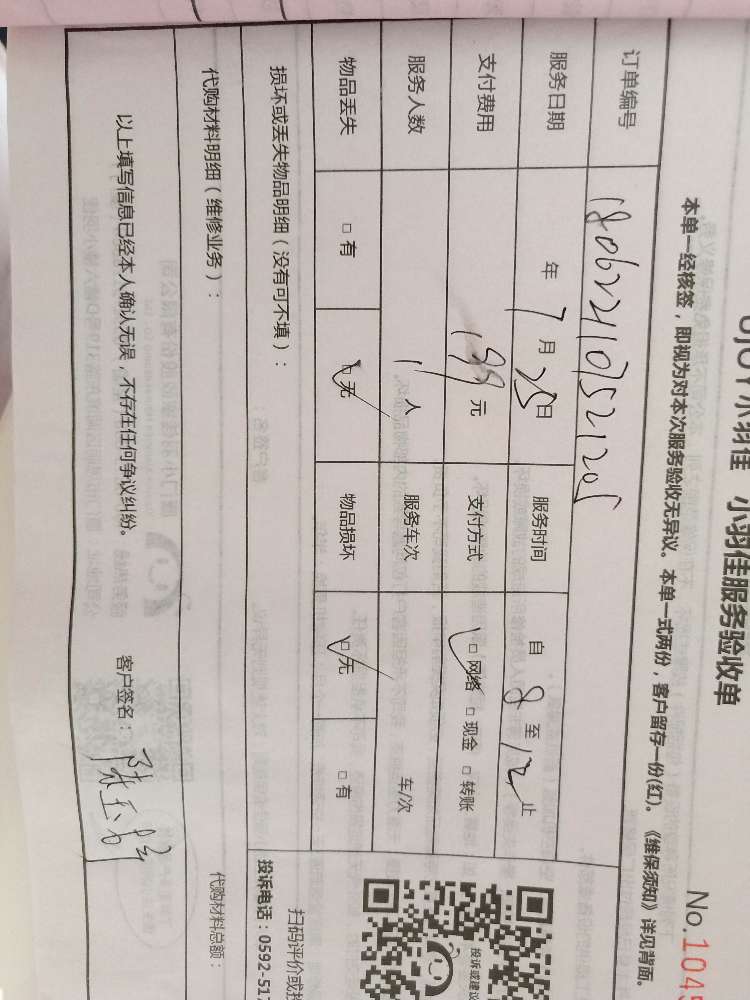 UJOY小羽佳 小羽佳服务验收单
No.1045
本单一经核签，即视为对本次服务验收无异议。本单一式两份，客户留存一份(红)。《维保须知》详见背面。
订单编号 180622107521205
服务日期 年7月25日 服务时间 自8至12止
支付费用 199元 支付方式 □网络 □现金 □转账
服务人数 1人 服务车次 车/次
物品丢失 □有 □无 物品损坏 □无 □有
损坏或丢失物品明细（没有可不填）：
代购材料明细（维修业务）： 代购材料总额：
以上填写信息已经本人确认无误，不存在任何争议纠纷。 客户签名：
投诉或建议
扫码评价或投
投诉电话：0592-517